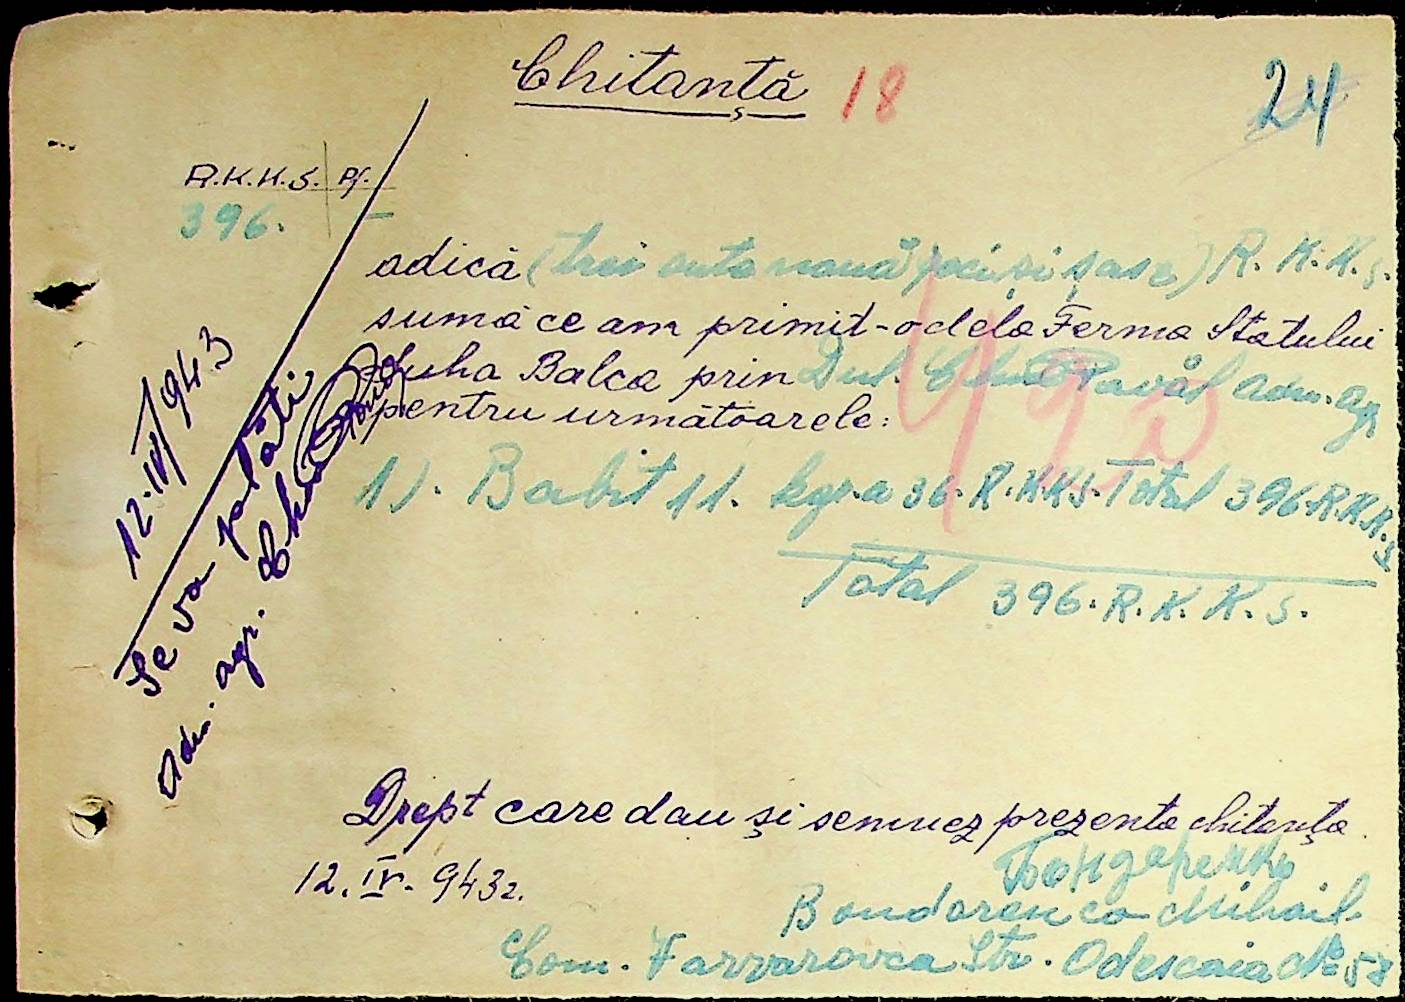 Chitanță 18 24
R.K.K.S. Pf.
396. —
adică (trei sute nouă zeci și șase) R.K.K.S.
sumă ce am primit-o dela Ferma Statului
Suha Balca prin Dul. Pavăl adm. agr
pentru următoarele:
1). Babit 11. kgr. a 36. R.K.K.S. Total 396. R.K.K.S
Total 396. R.K.K.S.
12.IV/943
Se va plăti
Adm. agr.
Drept care dau și semnez prezenta chitanța.
12. IV. 943 г.
Бондаренко
Bondarenco Mihail
Com. Farvarovca Str. Odescaia № 58